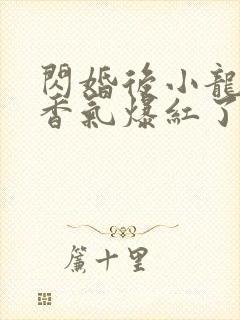 閃婚後小龍
香氣爆紅了
簾十里